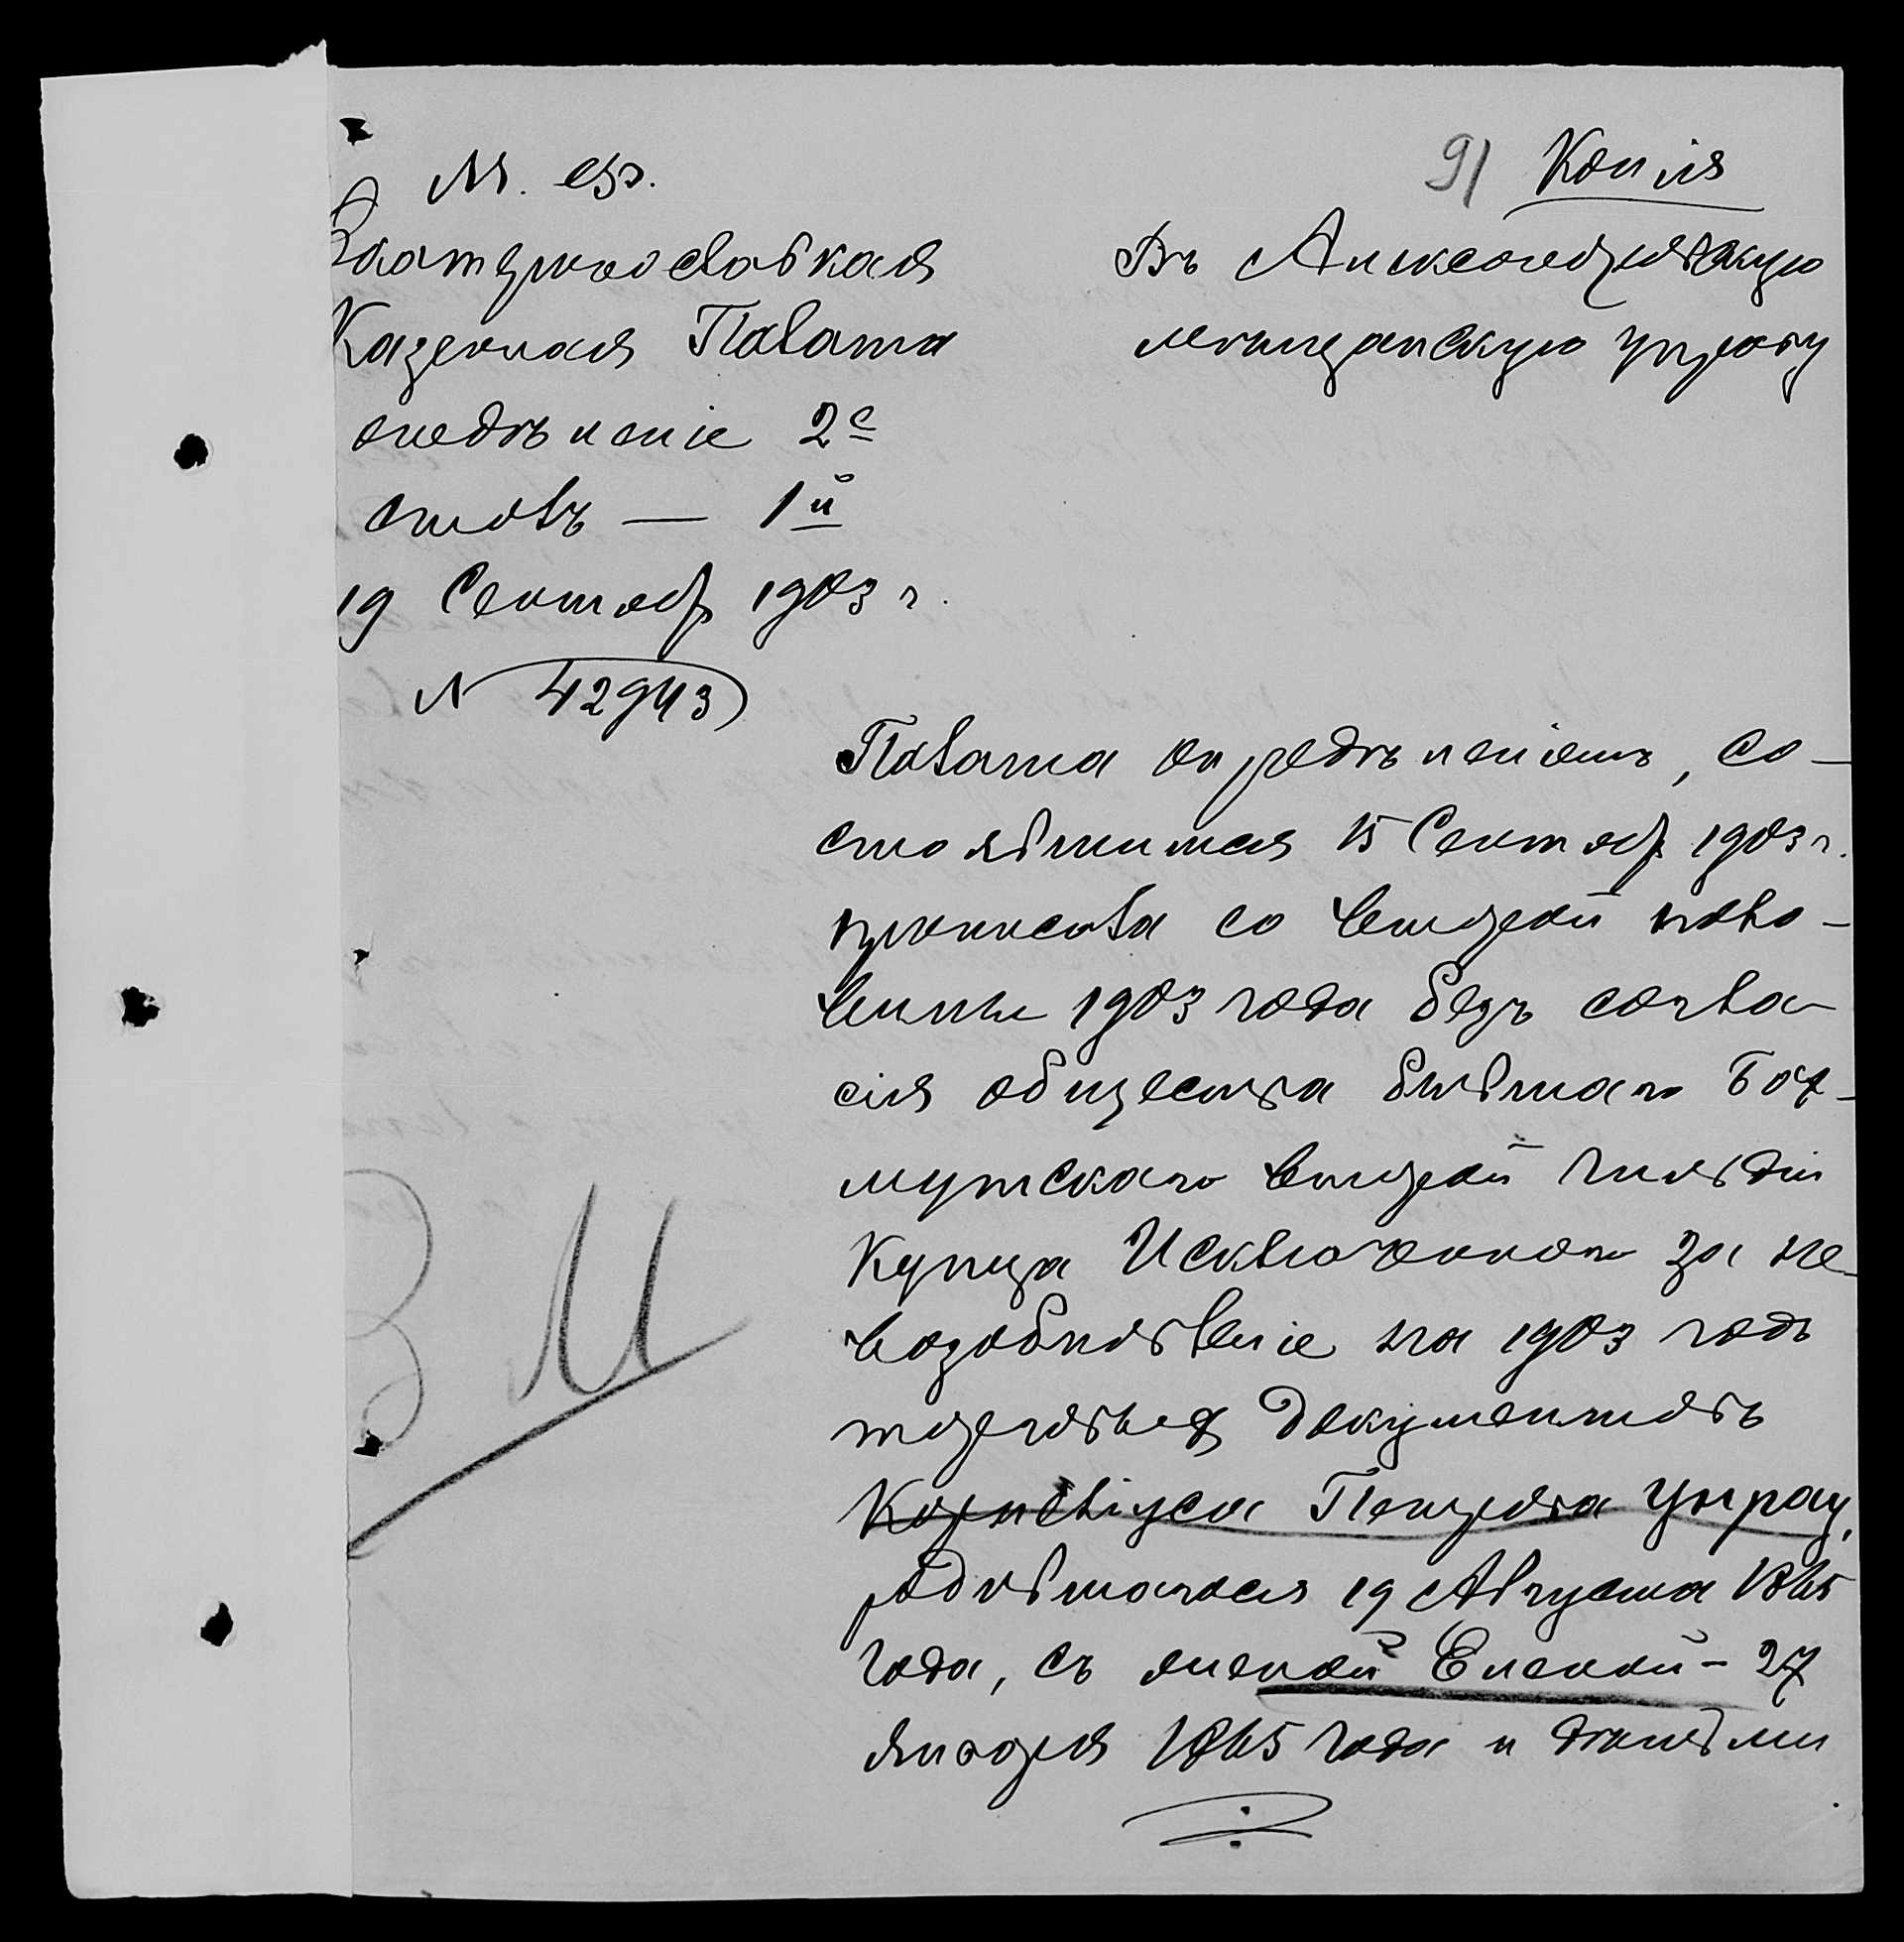 91 Копія
М. Ф.
Екатеринославская
Казенная Палата
отдѣленіе 2е
столъ — 1й
19 Сентябр 1903 г.
№ 42943
Въ Александровскую
мѣщанскую управу
Палата опредѣленіемъ, со-
стоявшимся 15 Сентябр 1903 г.
причислила со второй поло-
вины 1903 года безъ согла-
сія общества бывшаго Бах-
мутскаго второй гильдіи
купца исключеннаго за не-
возобновленіе на 1903 годъ
торговыхъ документовъ
Корнеліуса Петрова Унрау,
родившагося 19 Августа 1865
года, съ женой Еленой - 27
января 1865 года и дѣтьми